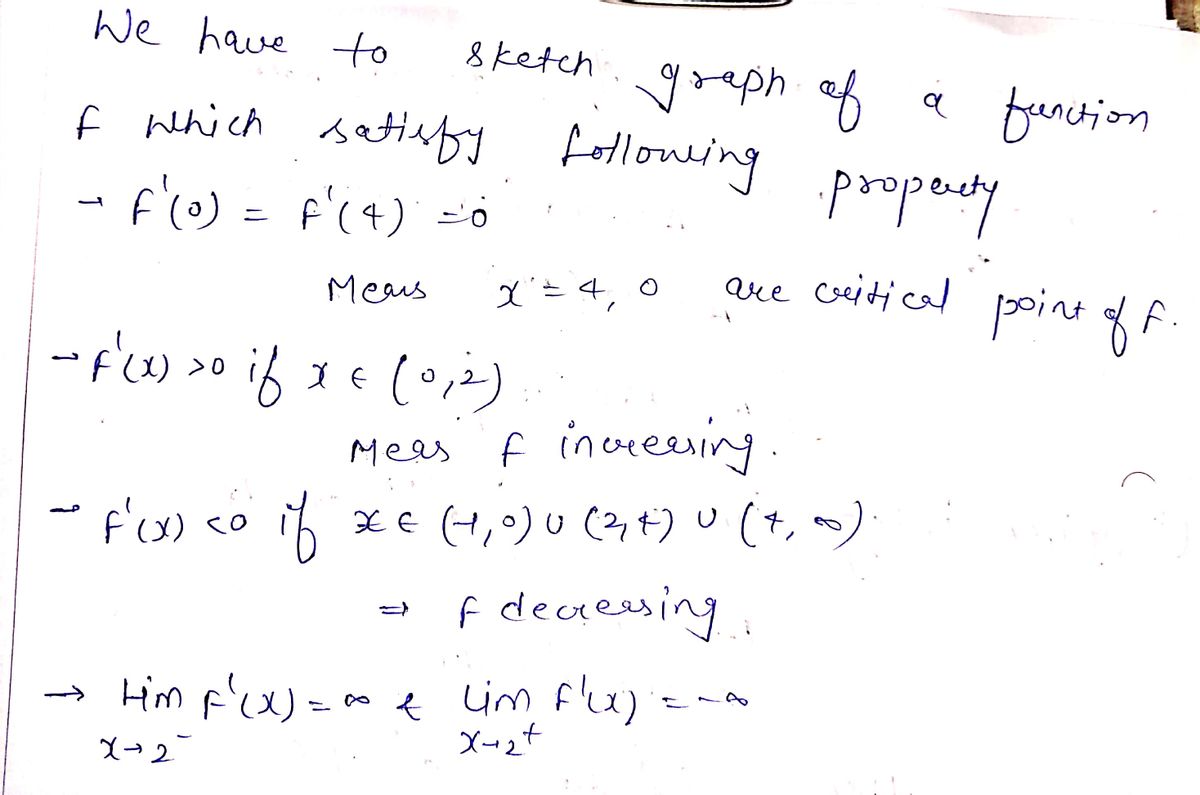 We have to sketch graph of a function
f which satisfy following property
→ f'(0) = f'(4) = 0
Means x = 4, 0 are critical point of f.
→ f'(x) >0 if x ∈ (0,2)
Meas f increasing.
→ f'(x) <0 if x ∈ (-1,0) ∪ (2,4) ∪ (4, ∞)
⇒ f decreasing
→ Lim f'(x) = ∞ & Lim f'(x) = -∞
x→2⁻ x→2⁺